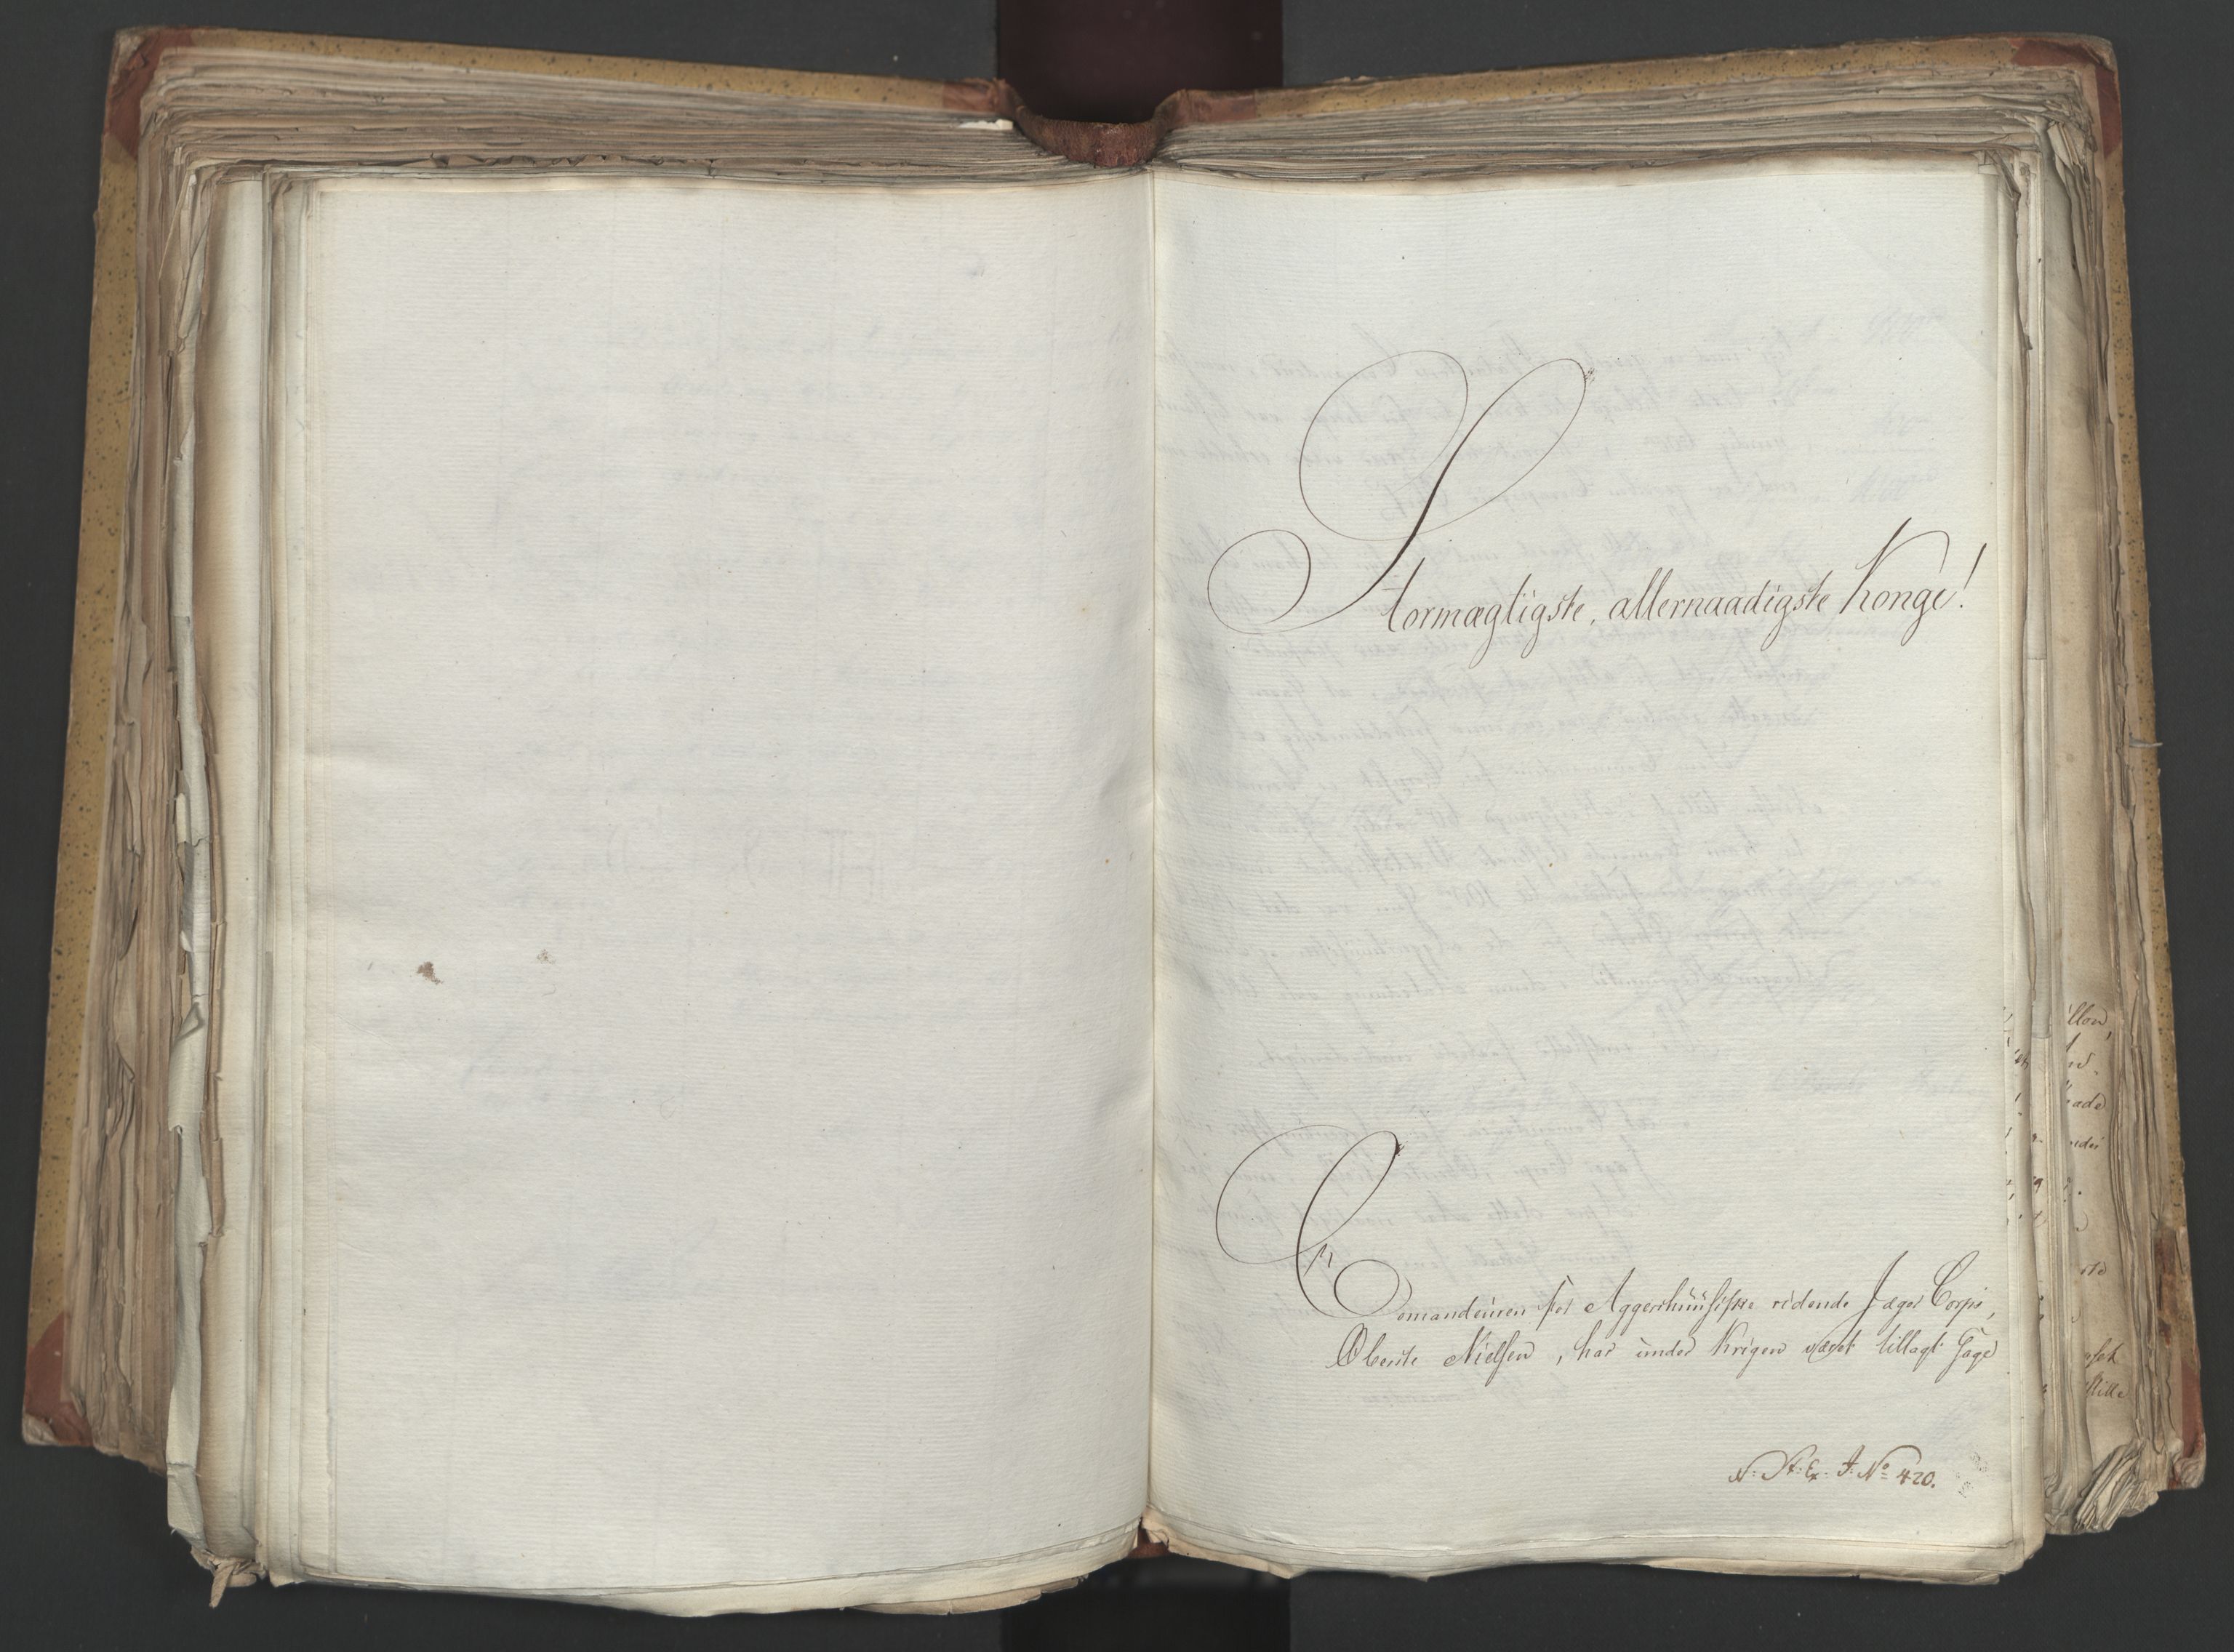 Stormægtigste, allernaadigste Konge!
Comandeuren for Aggershuusiske ridende Jæger Corps,
Oberste Nielsen, har under Krigen været tillagt Gage
N: St: Ex: J: No 420.